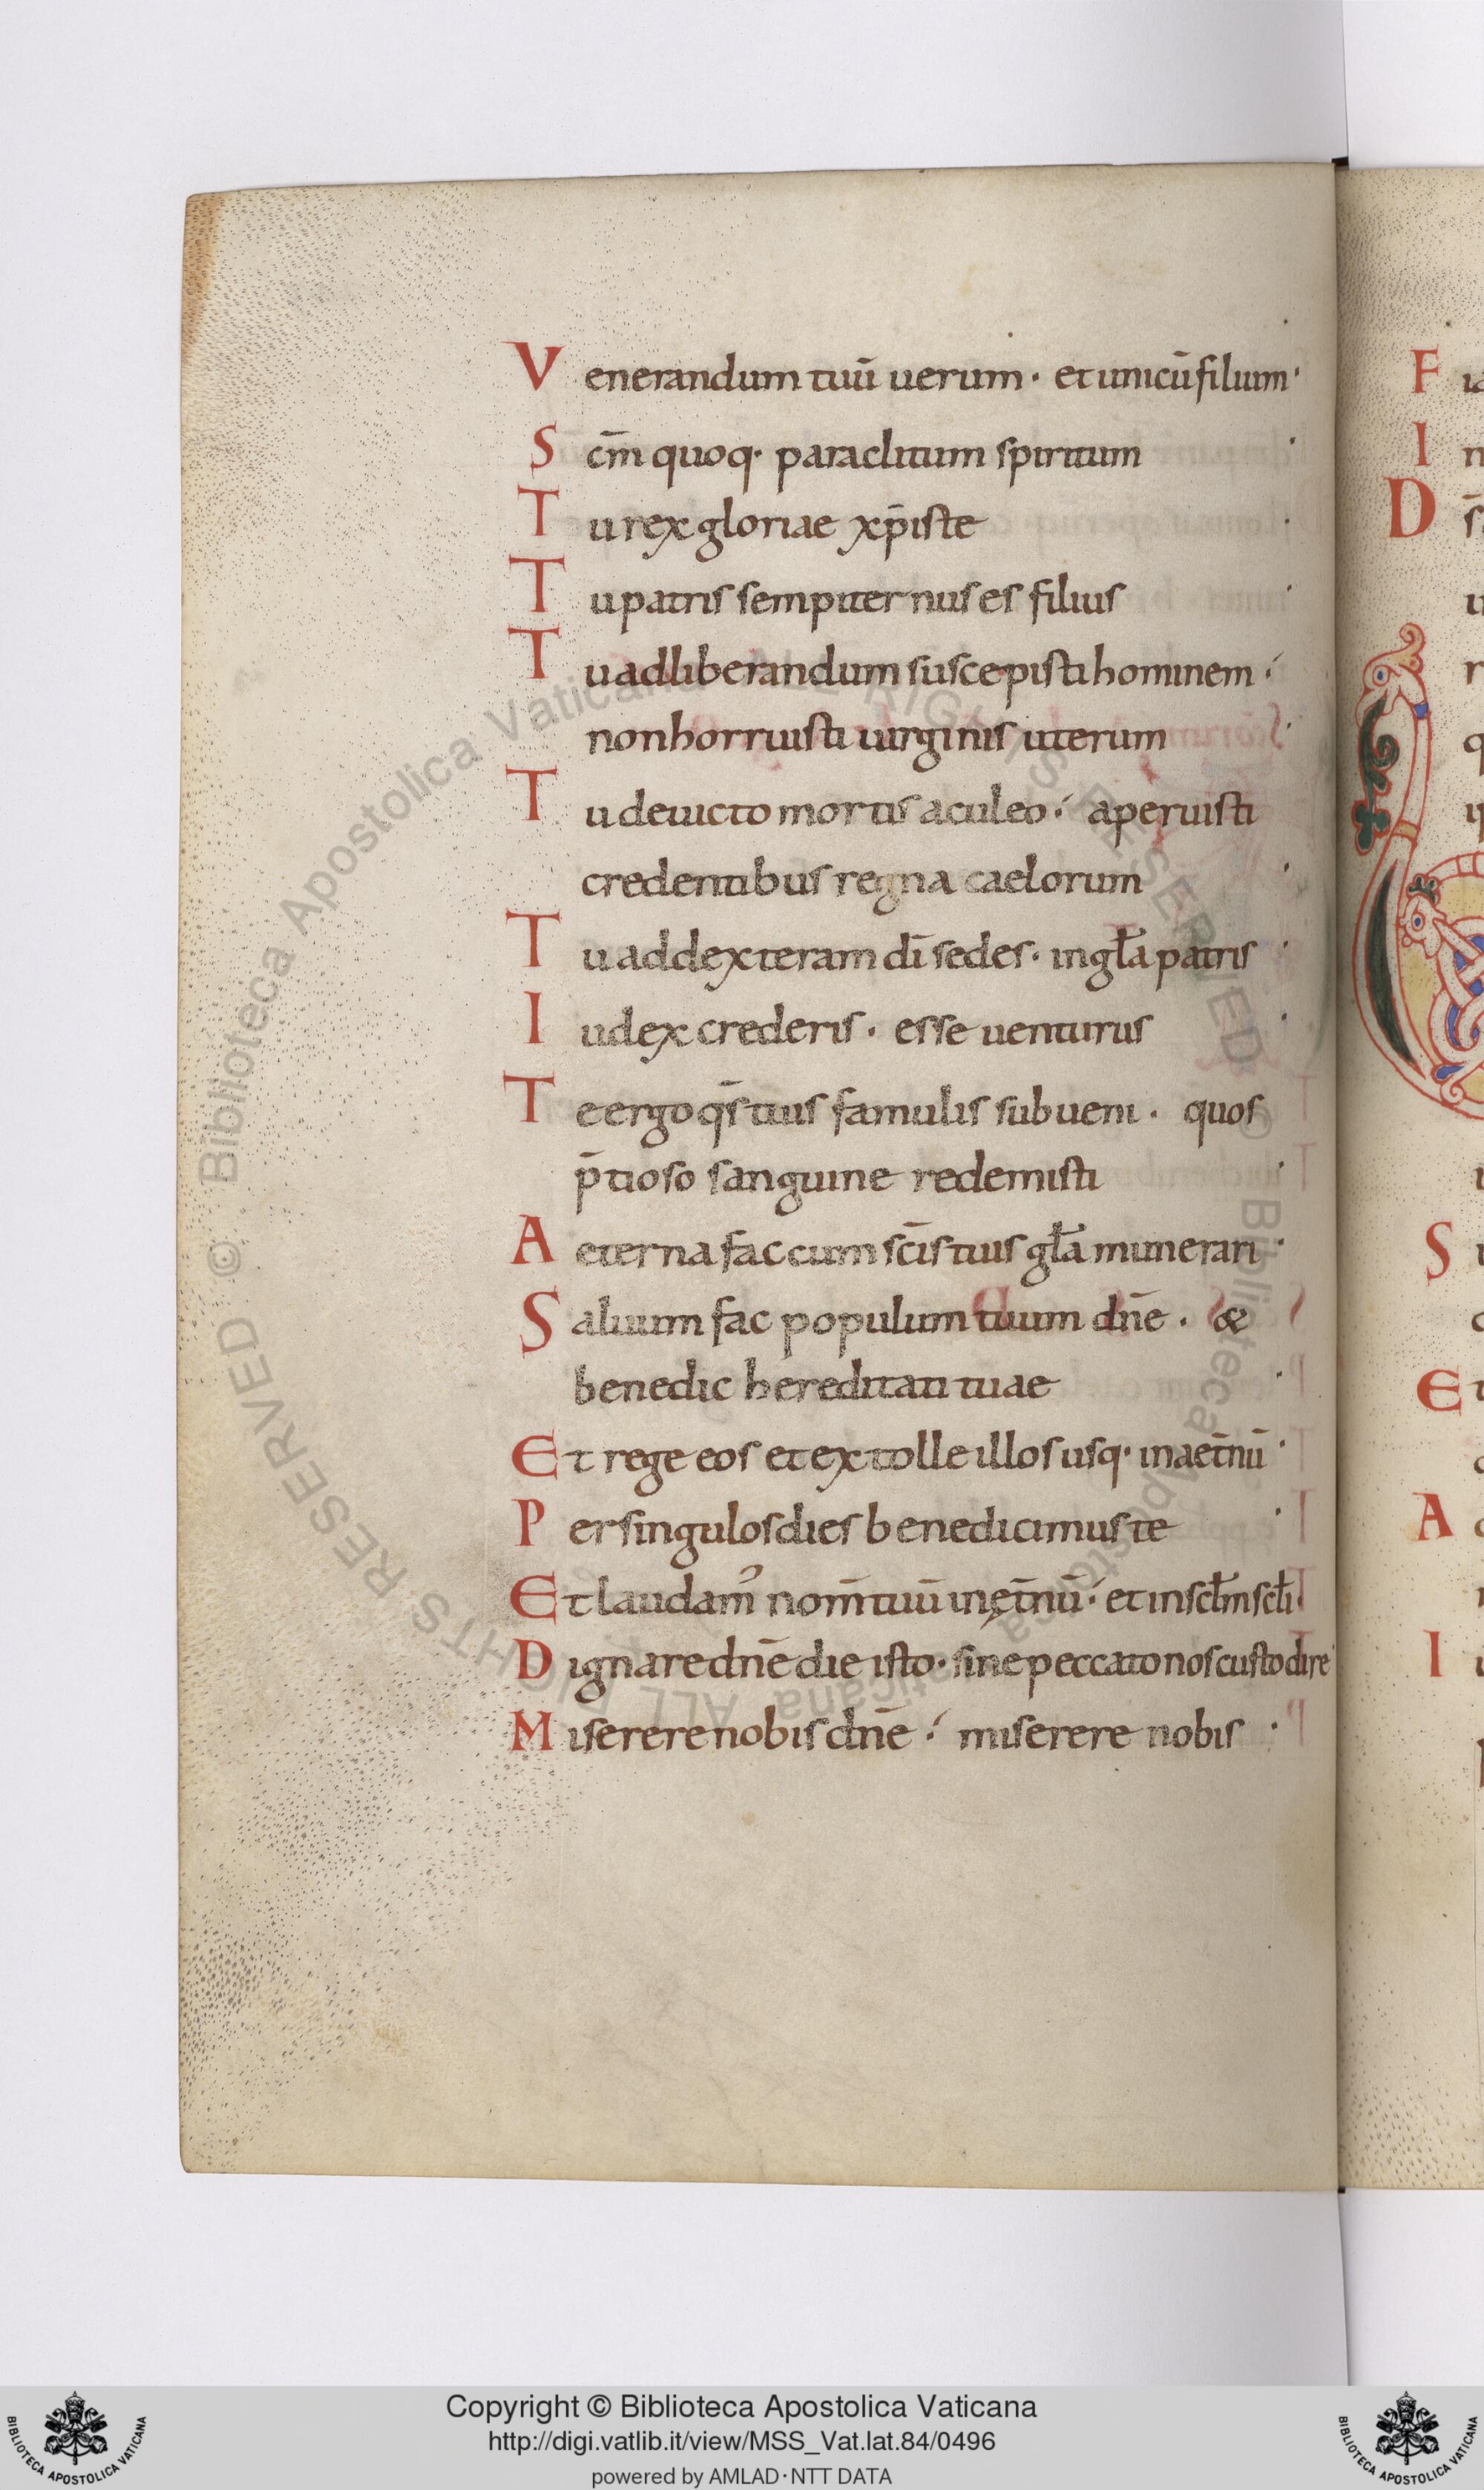 Venerandum tuū uerum · et unicū filium ·
Scm̄ quoq· paraclitum spiritum ·
Tu rex gloriae xp̄iste ·
Tu patris sempiternus es filius ·
Tu ad liberandum suscepisti hominem ·
non horruisti uirginis uterum ·
Tu deuicto mortis aculeo · aperuisti
credentibus regna caelorum ·
Tu ad dexteram dī sedes · in gła patris ·
Iudex crederis · esse uenturus ·
Te ergo qs̄ tuis famulis subueni · quos
p̄tioso sanguine redemisti ·
Aeterna fac cum scīs tuis gła munerari ·
Saluum fac populum tuum dn̄e · &
benedic hereditati tuae ·
Et rege eos et extolle illos usq· in aet̄nū ·
Per singulos dies benedicimus te ·
Et laudam̄ nom̄ tuū in ęt̄nū · et in scłm scłi
Dignare dn̄e die isto · sine peccato nos custodire
Miserere nobis dn̄e · miserere nobis ·
F
I
D
S
E
A
I
Biblioteca Apostolica Vaticana ALL RIGHTS RESERVED ©
Copyright © Biblioteca Apostolica Vaticana
http://digi.vatlib.it/view/MSS_Vat.lat.84/0496
powered by AMLAD·NTT DATA
BIBLIOTECA APOSTOLICA VATICANA
BIBLIOTECA APOSTOLICA VATICANA